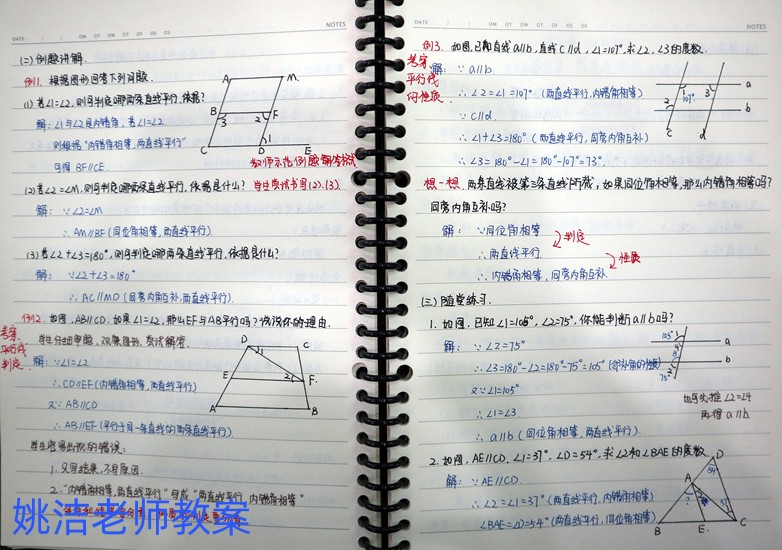 DATE
NOTES
(二)例题讲解.
例1. 根据图形回答下列问题.
(1) 若∠1=∠2, 则可判定哪两条直线平行, 依据?
解: ∠1与∠2是内错角, 若∠1=∠2.
则根据"内错角相等, 两直线平行"
可得 BF∥CE.
教师示范例题解答格式
(2) 若∠2=∠M, 则可判定哪两条直线平行, 依据是什么? 学生尝试书写(2).(3).
解: ∵∠2=∠M
∴AM∥BF (同位角相等, 两直线平行)
(3) 若∠2+∠3=180°, 则可判定哪两条直线平行, 依据是什么?
解: ∵∠2+∠3=180°
∴AC∥MD (同旁内角互补, 两直线平行)
A M B 3 2 F 1 C D E
考察平行线判定.
例2. 如图, AB∥CD, 如果∠1=∠2, 那么EF与AB平行吗? 说说你的理由.
学生分组审题, 观察图形, 尝试解答.
解: ∵∠1=∠2
∴CD∥EF (内错角相等, 两直线平行)
又∵AB∥CD
∴AB∥EF (平行于同一条直线的两条直线平行)
D C 1 E 2 F A B
学生容易出现的错误:
1. 只写结果, 不写原因.
2. "内错角相等, 两直线平行"写成"两直线平行, 内错角相等"
姚洁老师教案
DATE
NOTES
例3. 如图, 已知直线a∥b, 直线c∥d, ∠1=107°, 求∠2, ∠3的度数.
考察平行线的性质.
解: ∵a∥b
∴∠2=∠1=107° (两直线平行, 内错角相等)
∵c∥d
∴∠1+∠3=180° (两直线平行, 同旁内角互补)
∴∠3=180°-∠1=180°-107°=73°.
1 107° 3 a 2 b c d
想一想. 两条直线被第三条直线所截, 如果同位角相等, 那么内错角相等吗?
同旁内角互补吗?
解: ∵同位角相等
∴两直线平行.
∴内错角相等, 同旁内角互补.
判定
性质
(三)随堂练习.
1. 如图, 已知∠1=105°, ∠2=75°, 你能判断a∥b吗?
解: ∵∠2=75°
∴∠3=180°-∠2=180°-75°=105°
又∵∠1=105°
∴∠1=∠3
∴a∥b (同位角相等, 两直线平行).
105° 1 a b 2 75°
也可先推∠2=∠4
再得a∥b.
2. 如图, AE∥CD, ∠1=37°, ∠D=54°, 求∠2和∠BAE的度数.
解: ∵AE∥CD.
∴∠2=∠1=37° (两直线平行, 内错角相等)
∠BAE=∠D=54° (两直线平行, 同位角相等)
D 54° A B E C